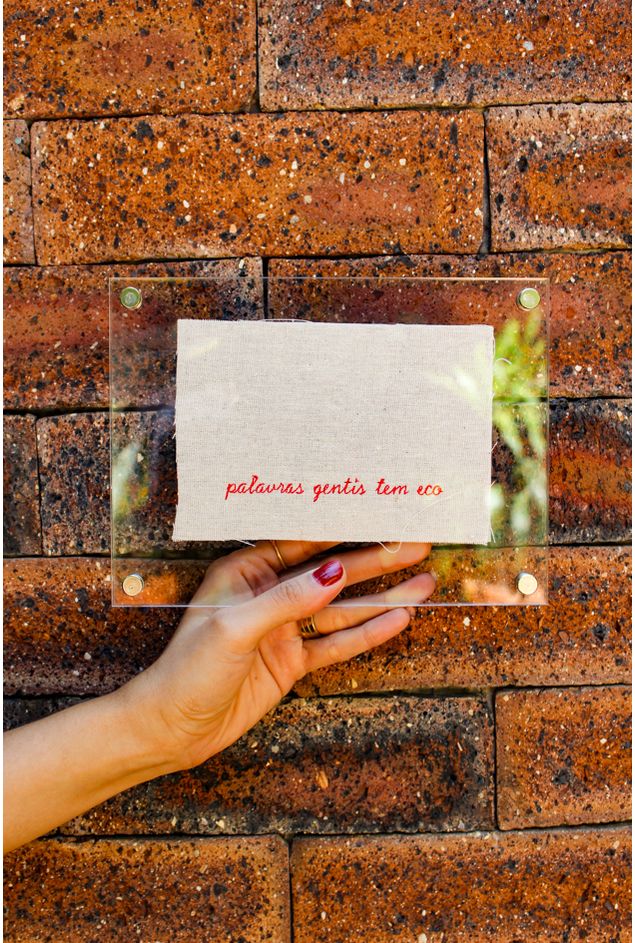 palavras gentis tem eco